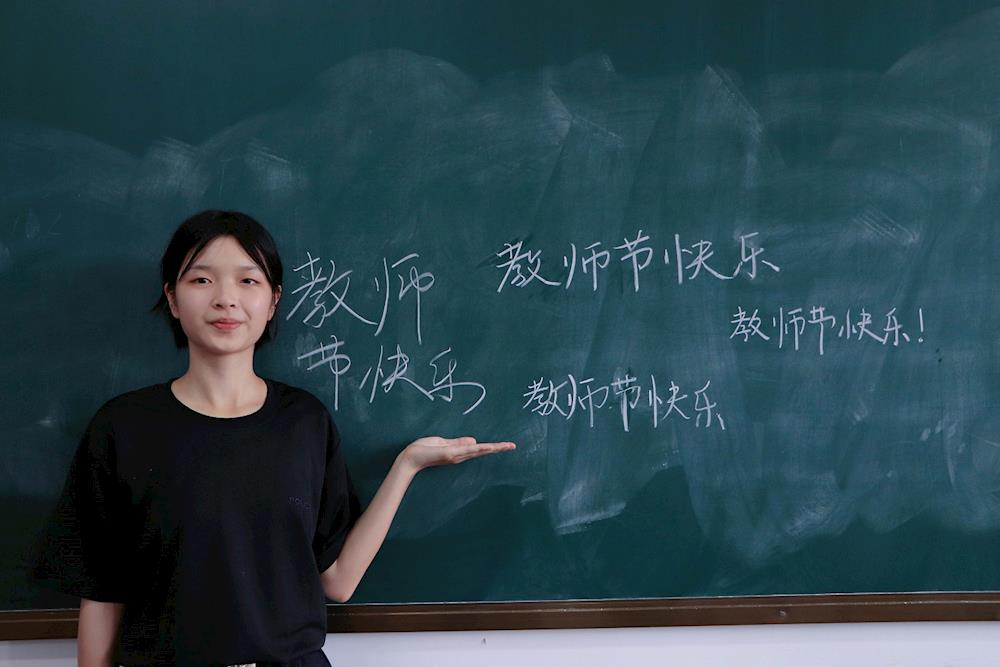 教师
节快乐
教师节快乐
教师节快乐!
教师节快乐